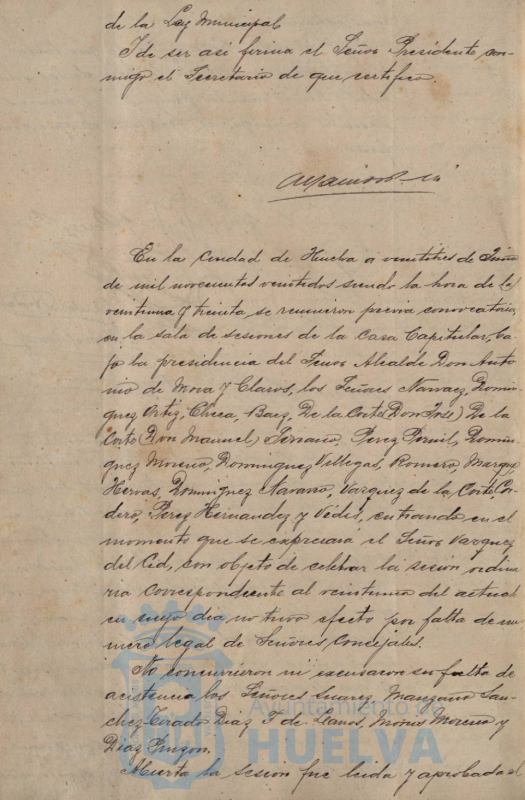 de la Ley Municipal.
Y de ser asi firma el Señor Presidente con-
migo el Secretario de que certifico.
En la Ciudad de Huelva a veintitres de Junio
de mil novecientos veintidos siendo la hora de las
veintiuna y treinta se reunieron previa convocatoria,
en la sala de sesiones de la Casa Capitular, ba-
jo la presidencia del Señor Alcalde Don Anto-
nio de Mora y Claros, los Señores Narvaez, Domin-
guez Ortiz, Checa, Baez, De la Corte (Don Jose) De la
Corte (Don Manuel) Serrano, Perez, Domin-
guez Moreno, Dominguez Villegas, Romero, Marquez
Hervas, Dominguez Navarro, Vazquez de la Corte, Cor-
dero, Perez Hernandez y Vides, entrando en el
momento que se expresará el Señor Vazquez
del Cid, con objeto de celebrar la sesión ordina-
ria correspondiente al veintiuno del actual
en cuyo dia no tuvo efecto por falta de nu-
mero legal de Señores Concejales.
No concurrieron ni excusaron su falta de
asistencia los Señores Suarez, Manzano, San-
chez-Tirado, Diaz F. de Llanos, Moreno y
Diaz Pinzon.
Abierta la sesion fue leida y aprobada el
Ayuntamiento de
HUELVA